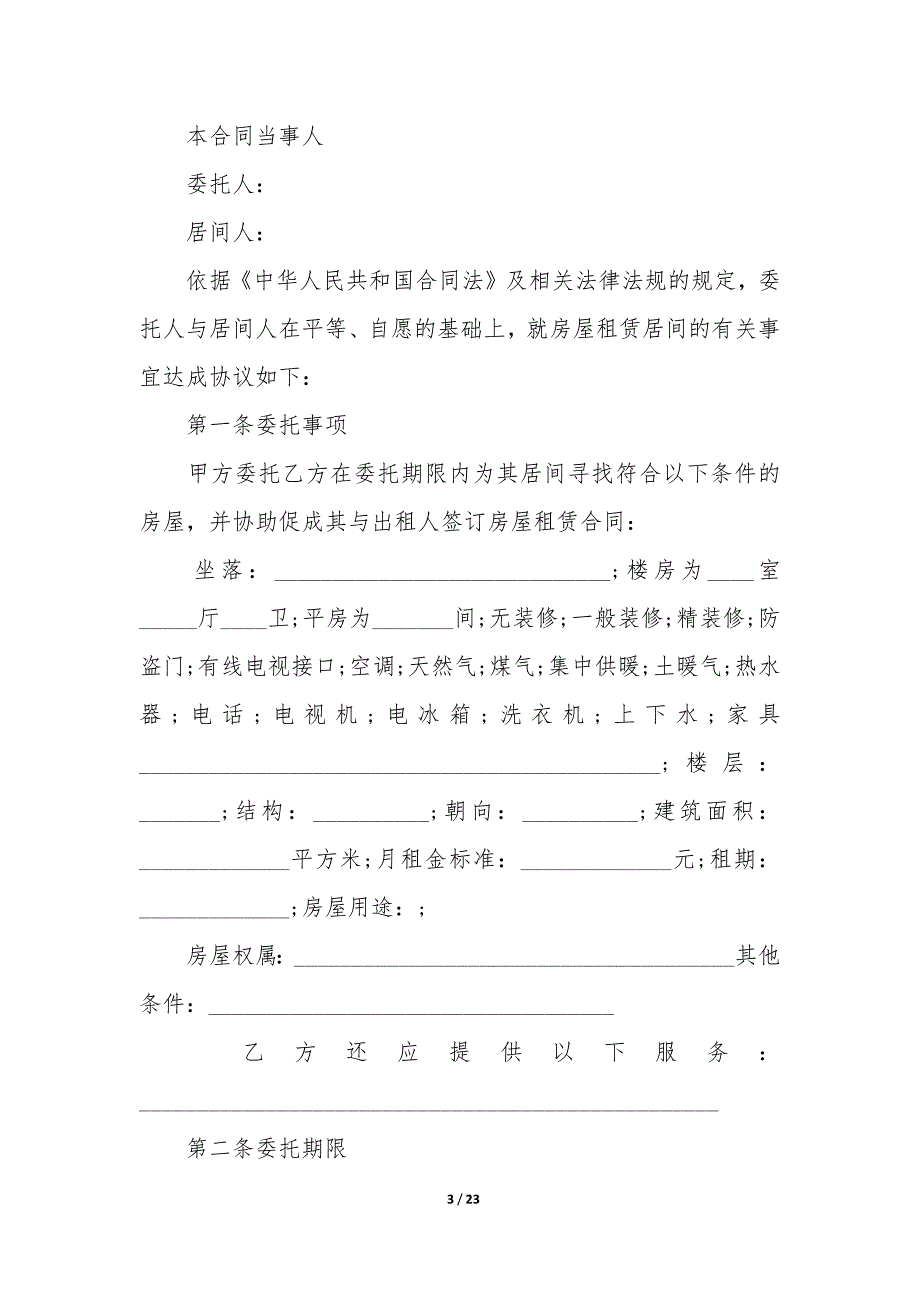 本合同当事人
委托人：
居间人：
依据《中华人民共和国合同法》及相关法律法规的规定，委
托人与居间人在平等、自愿的基础上，就房屋租赁居间的有关事
宜达成协议如下：
第一条委托事项
甲方委托乙方在委托期限内为其居间寻找符合以下条件的
房屋，并协助促成其与出租人签订房屋租赁合同：
坐落：_____________________________;楼房为____室
_____厅____卫;平房为_______间;无装修;一般装修;精装修;防
盗门;有线电视接口;空调;天然气;煤气;集中供暖;土暖气;热水
器;电话;电视机;电冰箱;洗衣机;上下水;家具
_____________________________________________;楼层：
_______;结构：__________;朝向：__________;建筑面积：
_____________平方米;月租金标准：_____________元;租期：
_____________;房屋用途：;
房屋权属：______________________________________其他
条件：___________________________________
乙方还应提供以下服务：
__________________________________________________
第二条委托期限
3 / 23